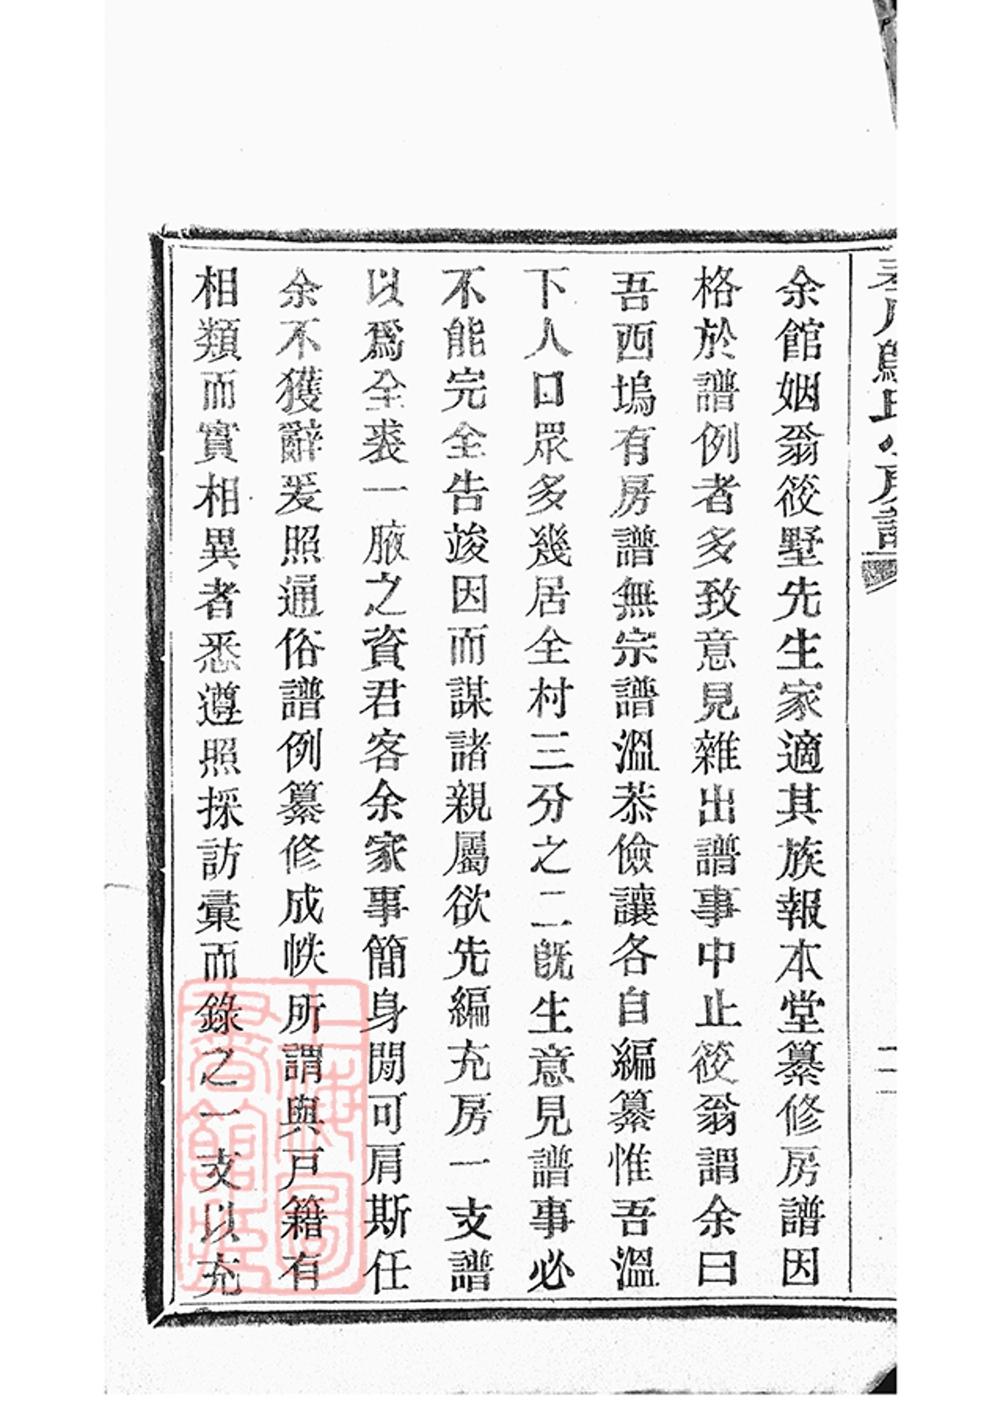 余館姻翁筱墅先生家適其族報本堂纂修房譜因
格於譜例者多致意見雜出譜事中止筱翁謂余曰
吾西塢有房譜無宗譜溫恭儉讓各自編纂惟吾溫
下人口眾多幾居全村三分之二旣生意見譜事必
不能完全告竣因而謀諸親屬欲先編充房一支譜
以爲全裘一腋之資君客余家事簡身閒可肩斯任
余不獲辭爰照通俗譜例纂修成帙所謂與戸籍有
相類而實相異者悉遵照採訪彙而錄之一支以充
上海圖書館藏